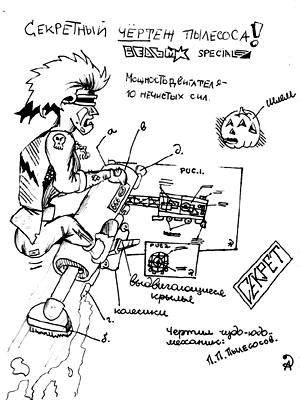 СЕКРЕТНЫЙ ЧЕРТЕЖ ПЫЛЕСОСА!
ВЕДЬМ★ SPECIAL
МОЩНОСТЬ ДВИГАТЕЛЯ-
10 НЕЧИСТЫХ СИЛ.
ШЛЕМ
а
в
д.
РИС.1.
РИС2.
выдвигающиеся
крылья
колесики
г.
б.
СЕКРЕТ
Чертил чудо-юдо
механик:
П.П.Пылесосов.